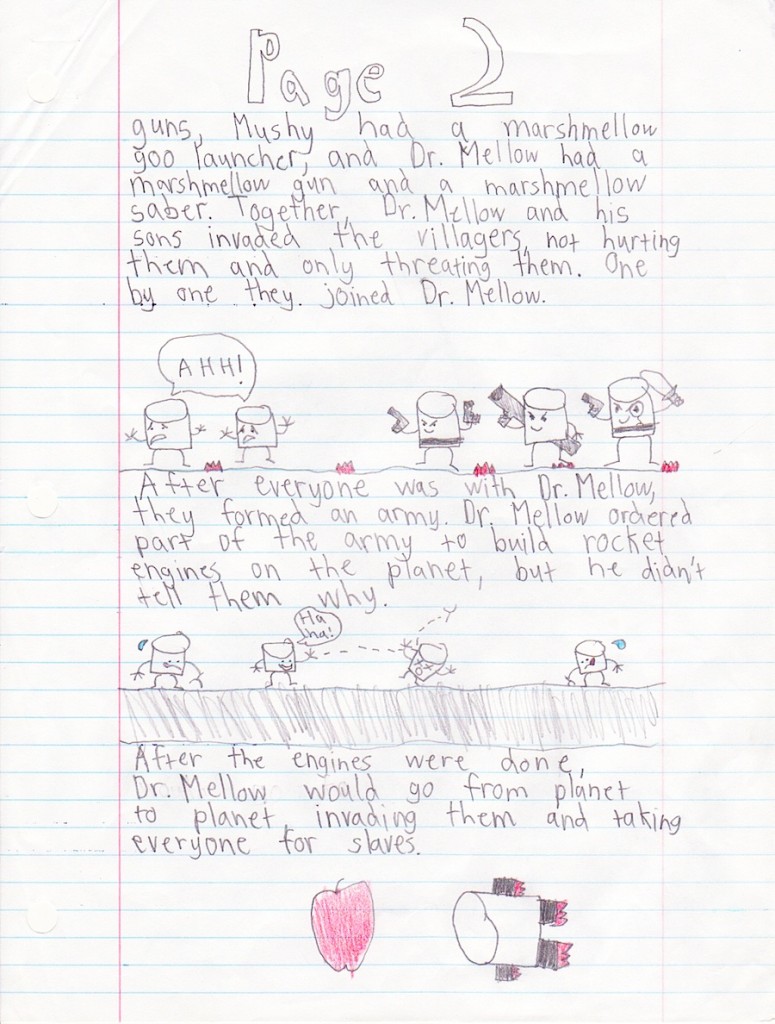 Page 2
guns, Mushy had a marshmellow
goo launcher, and Dr. Mellow had a
marshmellow gun and a marshmellow
saber. Together, Dr. Mellow and his
sons invaded the villagers, not hurting
them and only threating them. One
by one they joined Dr. Mellow.
AHH!
After everyone was with Dr. Mellow,
they formed an army. Dr. Mellow ordered
part of the army to build rocket
engines on the planet, but he didn't
tell them why.
Ha
ha!
After the engines were done,
Dr. Mellow would go from planet
to planet, invading them and taking
everyone for slaves.